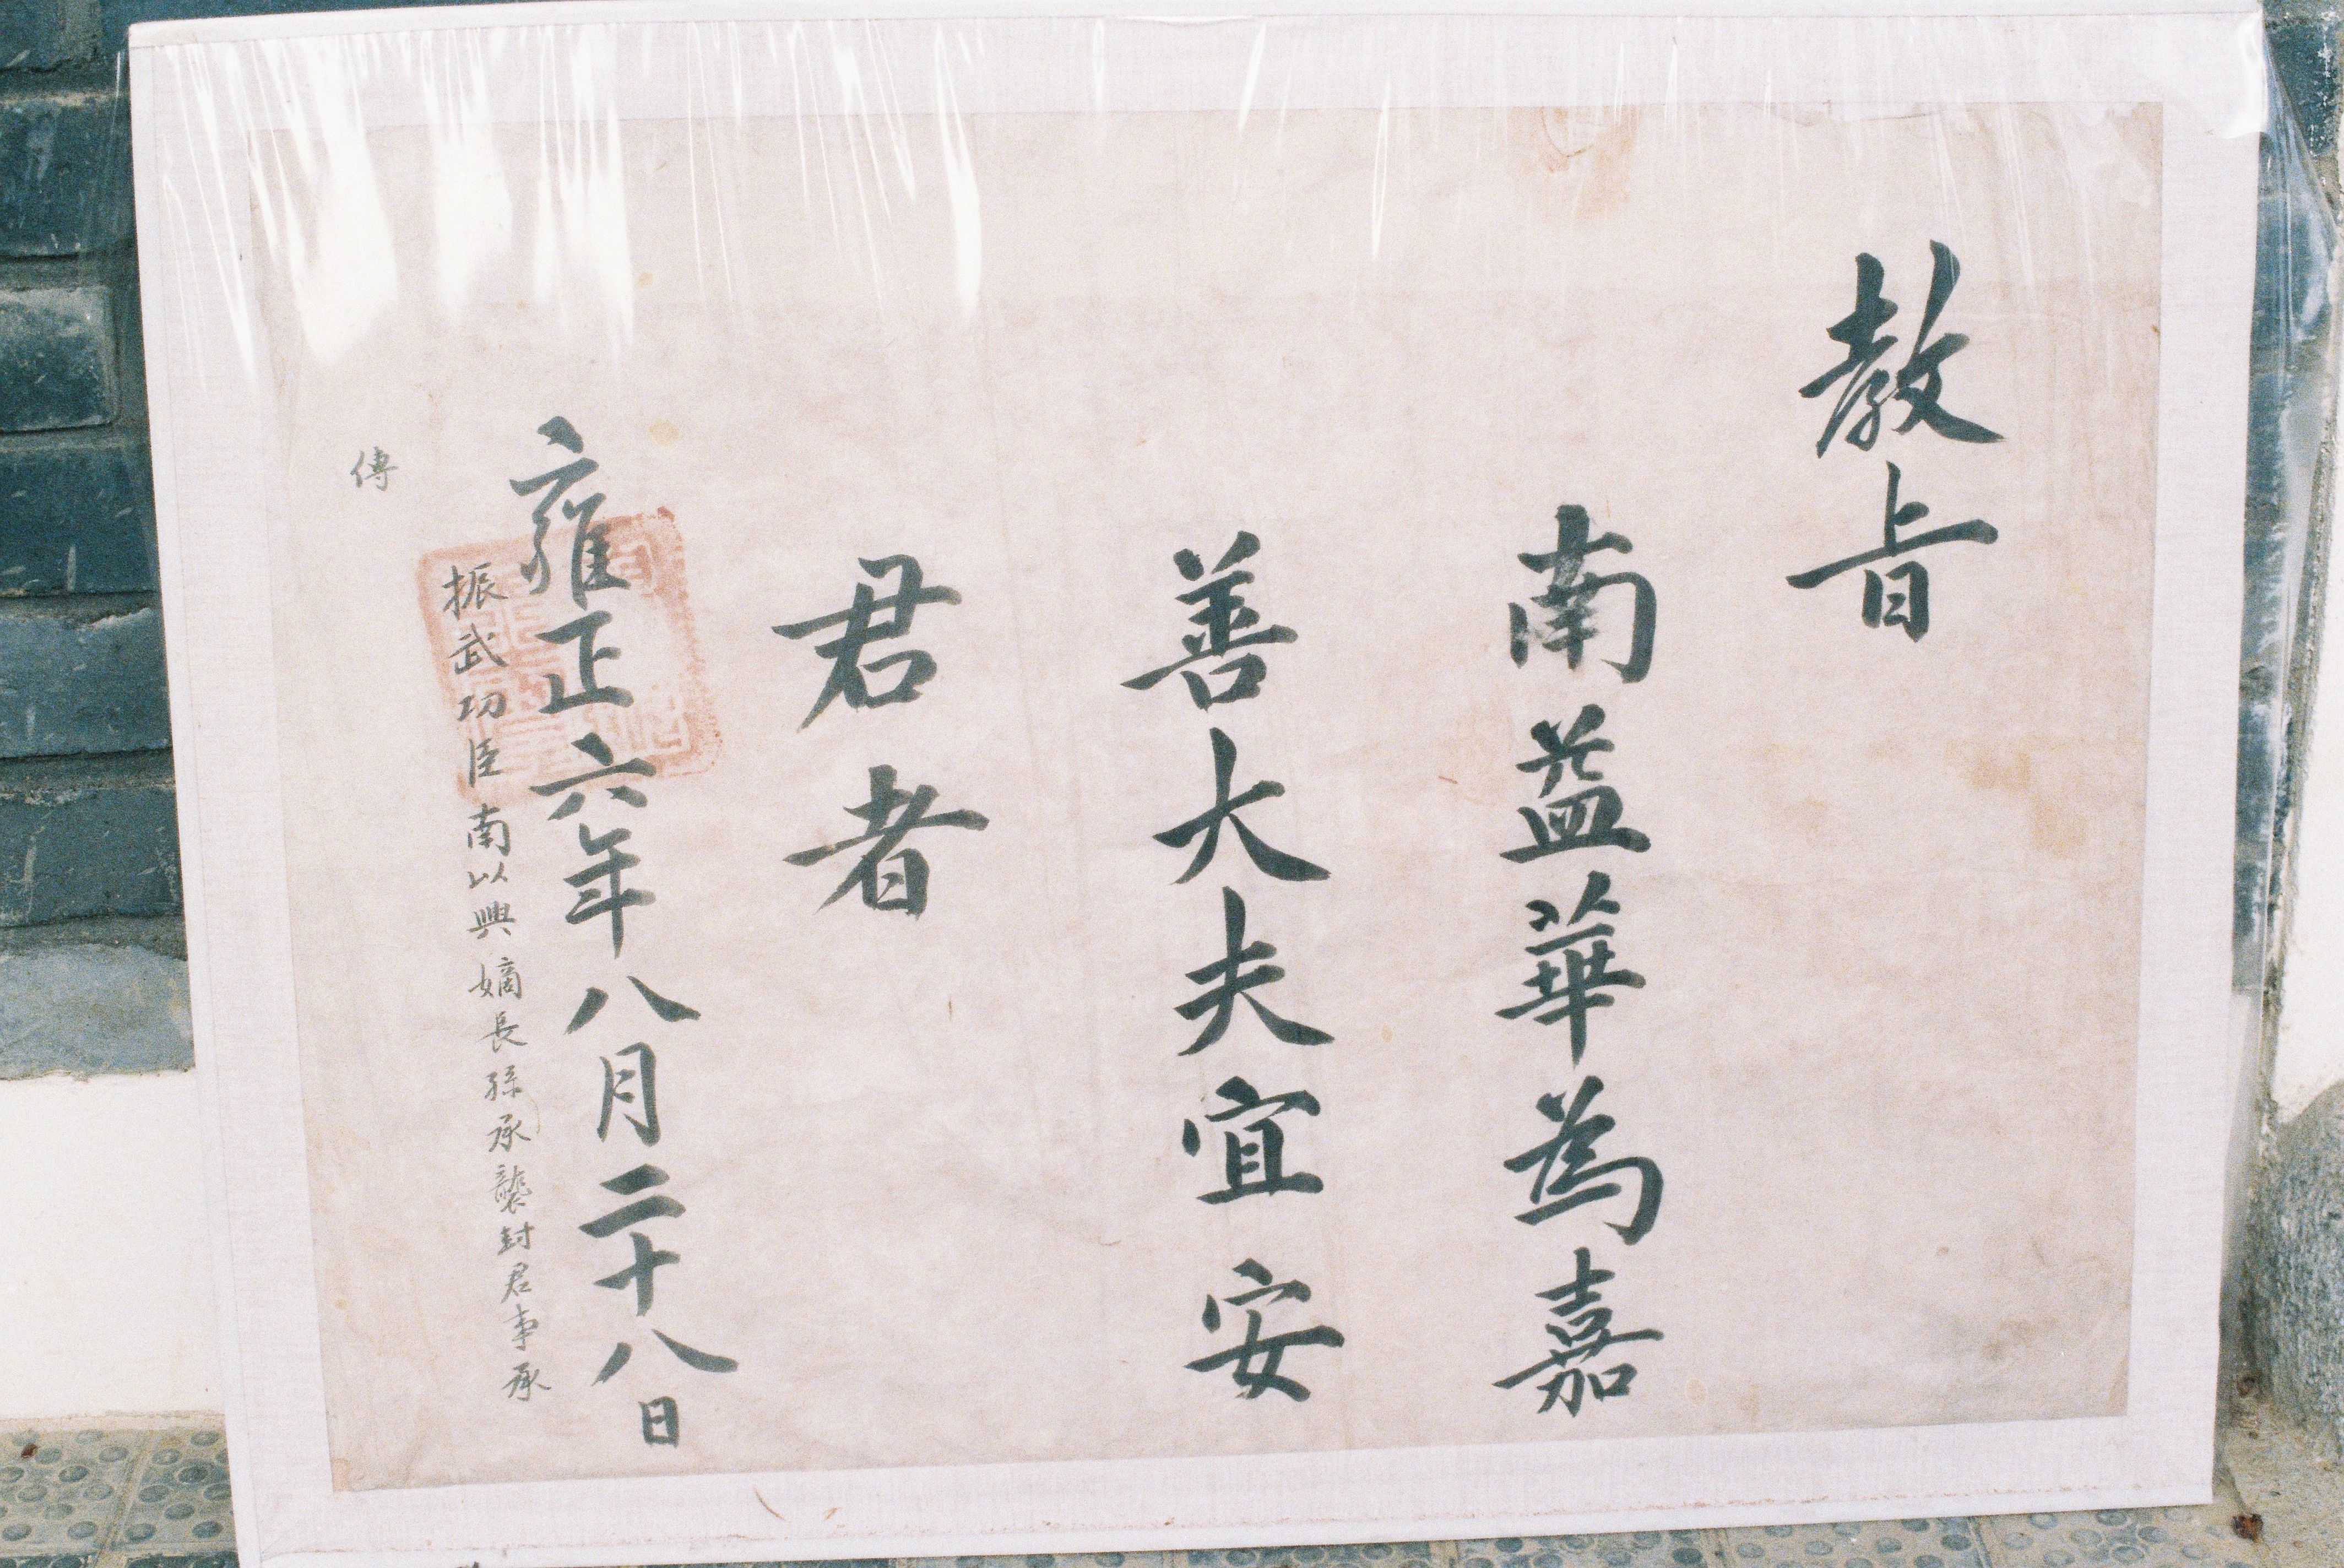 教旨
南益華為嘉
善大夫宜安
君者
雍正六年八月二十八日
振武功臣南以興嫡長孫承襲封君事承
傳